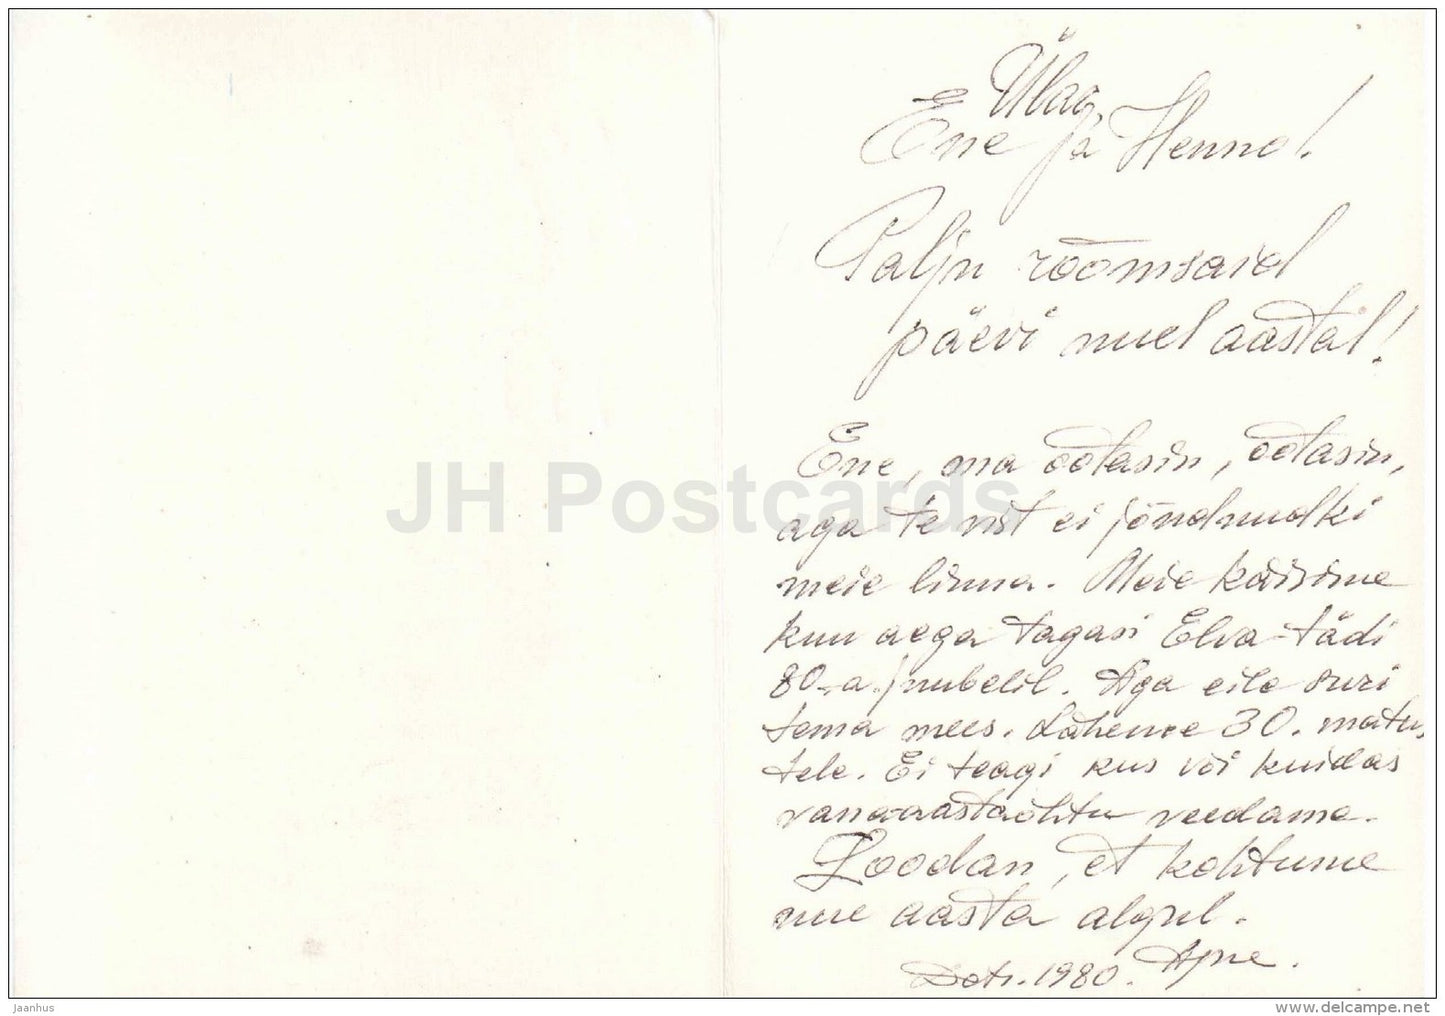 Ülar,
Ene ja Henno!
Palju rõõmsaid
päevi uuel aastal!
Ene, ma ootasin, ootasin,
aga te vist ei jõudnudki
meie linna. Meie käisime
kuu aega tagasi Elva-tädi
80-a. juubelil. Aga eile suri
tema mees. Läheme 30. matus
tele. Ei teagi kus või kuidas
vanaaastaõhtu veedame.
Loodan, et kohtume
uue aasta algul.
Dets. 1980.
JH Postcards
jaanhus
www.delcampe.net